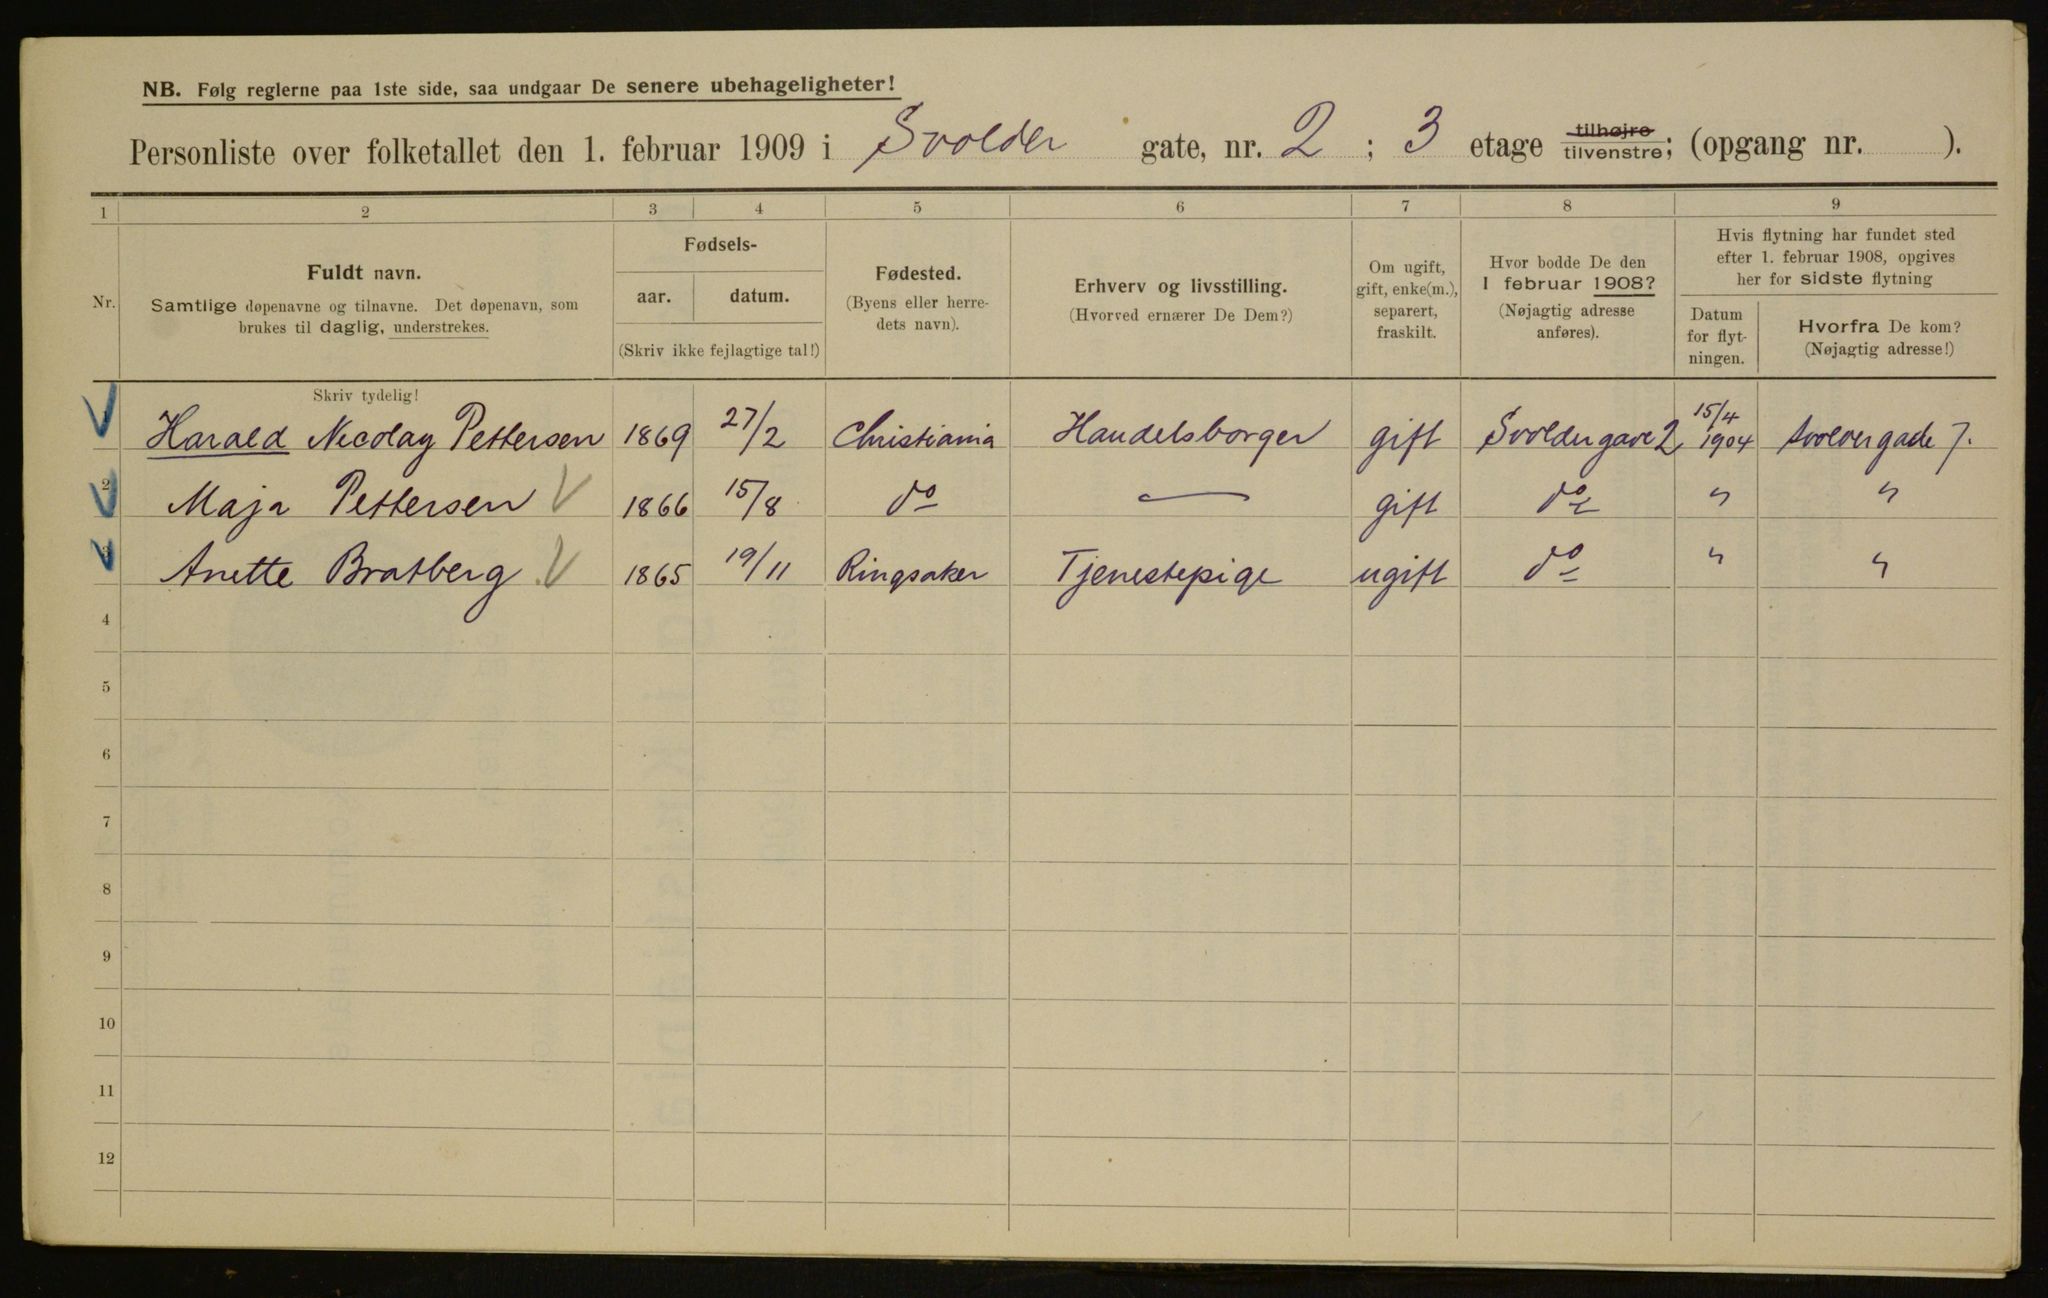 NB. Følg reglerne paa 1ste side, saa undgaar De senere ubehageligheter!
Personliste over folketallet den 1. februar 1909 i Svolder gate, nr. 2 ; 3 etage tilhøjre tilvenstre; (opgang nr. ).
1 2 3 4 5 6 7 8 9
Nr.
Fuldt navn.
Samtlige døpenavne og tilnavne. Det døpenavn, som
brukes til daglig, understrekes.
Fødsels-
aar. datum.
(Skriv ikke fejlagtige tal!)
Fødested.
(Byens eller herre-
dets navn).
Erhverv og livsstilling.
(Hvorved ernærer De Dem?)
Om ugift,
gift, enke(m.),
separert,
fraskilt.
Hvor bodde De den
1 februar 1908?
(Nøjagtig adresse
anføres).
Hvis flytning har fundet sted
efter 1. februar 1908, opgives
her for sidste flytning
Datum
for flyt-
ningen.
Hvorfra De kom?
(Nøjagtig adresse!)
Skriv tydelig!
1 Harald Nicolay Pettersen 1869 27/2 Christiania Handelsborger gift Svolder gade 2 15/4 1904 Svolder gade 7.
2 Maja Pettersen V 1866 15/8 do — gift do " "
3 Anette Bratberg V 1865 19/11 Ringsaker Tjenestepige ugift do " "
4
5
6
7
8
9
10
11
12